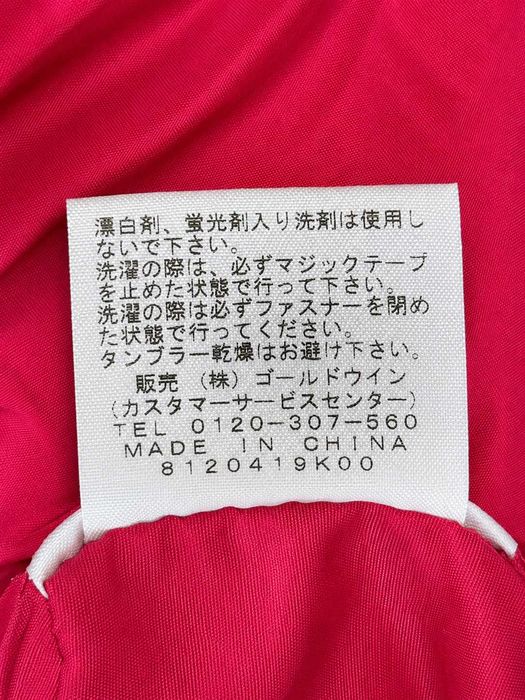 漂白剤、蛍光剤入り洗剤は使用し
ないで下さい。
洗濯の際は、必ずマジックテープ
を止めた状態で行って下さい。
洗濯の際は必ずファスナーを閉め
た状態で行ってください。
タンブラー乾燥はお避け下さい。
販売 (株) ゴールドウイン
(カスタマーサービスセンター)
TEL 0120-307-560
MADE IN CHINA
8120419K00